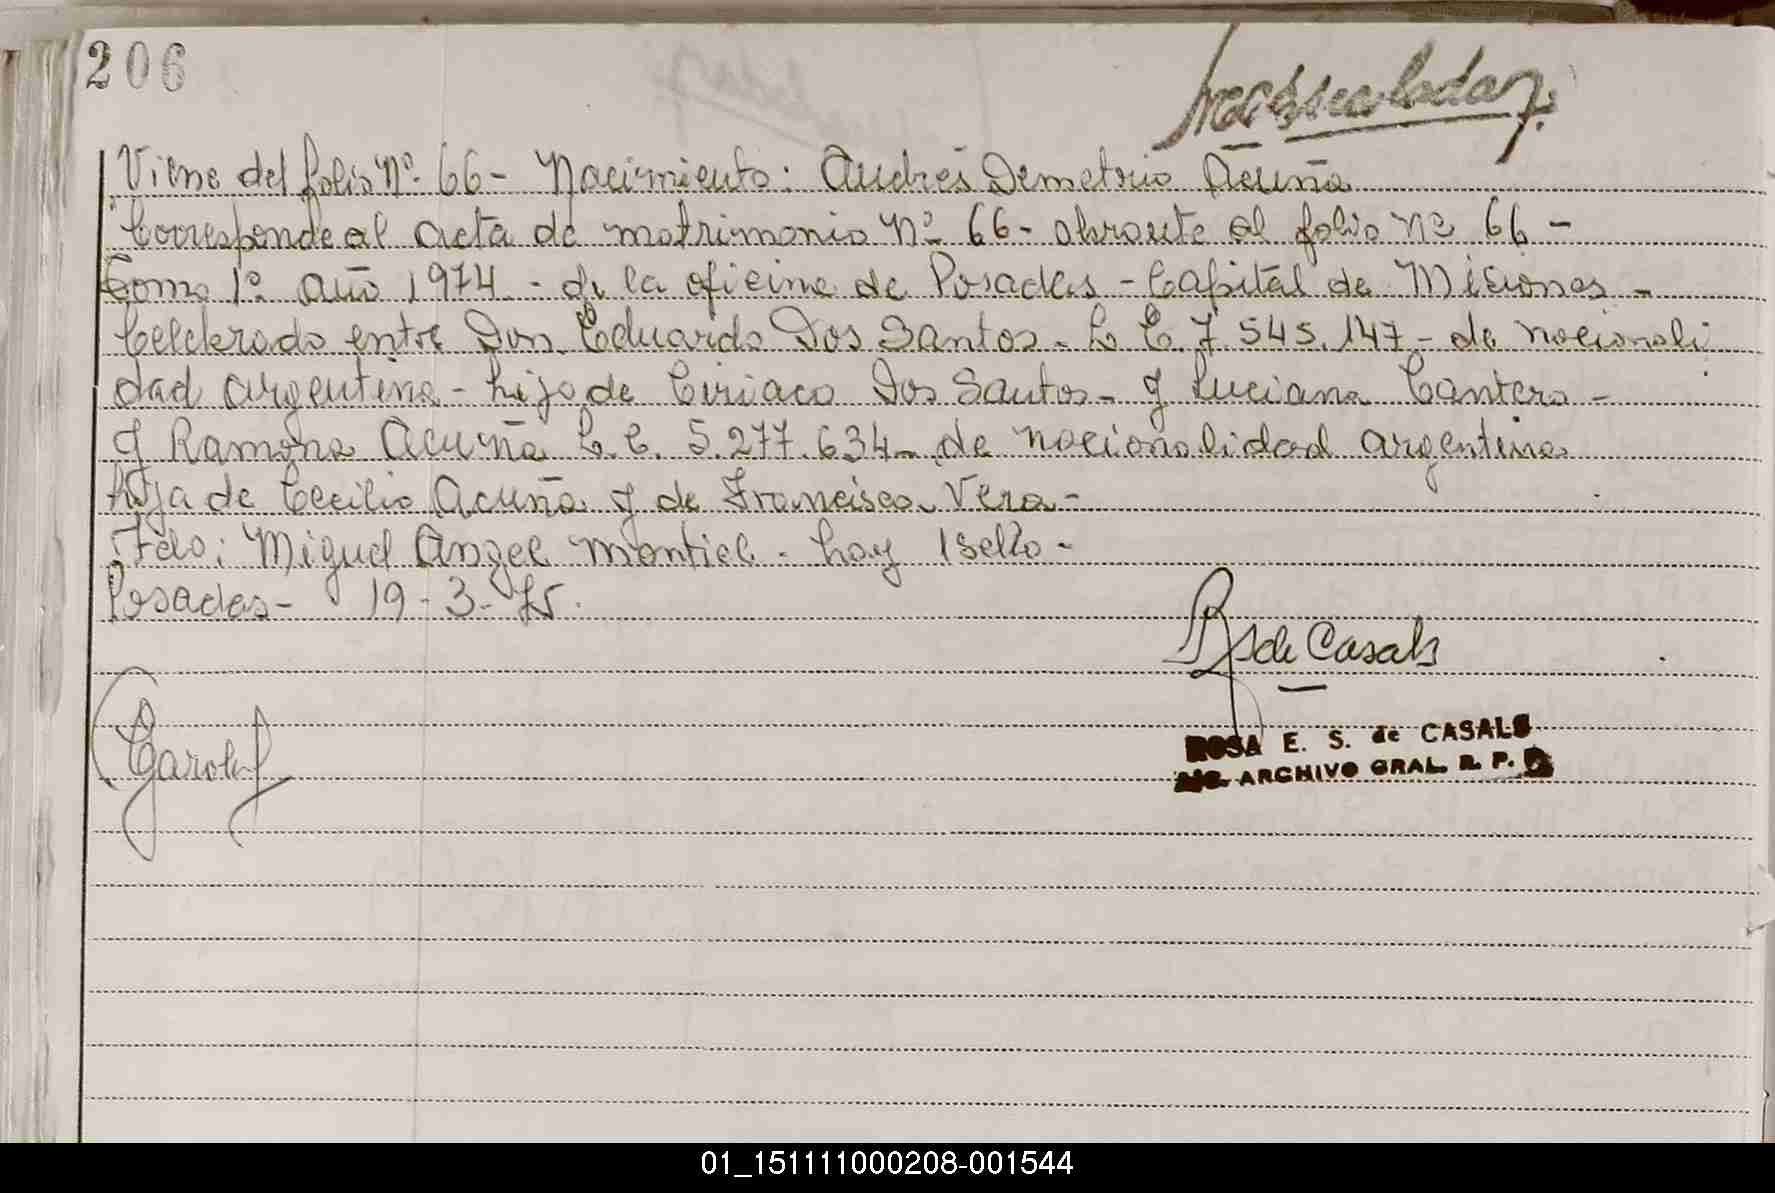 206
Viene del folio Nº 66 - Nacimiento: Andrés Demetrio Acuña
Corresponde al acta de matrimonio Nº 66 - obrante al folio Nº 66 -
Tomo 1º año 1974 - de la oficina de Posadas - Capital de Misiones -
Celebrado entre Don Eduardo Dos Santos - L E. 7.545.147 - de nacionali
dad argentina - hijo de Ciriaco Dos Santos - y Luciana Cantero -
y Ramona Acuña L. C. 5.277.634 - de nacionalidad argentina
hija de Cecilio Acuña y de Francisca Vera -
Fdo: Miguel Angel Montiel - hay 1 sello -
Posadas - 19 - 3 - 75.
de Casals
ROSA E. S. de CASALS
ARCHIVO GRAL. R. P.
01_151111000208-001544